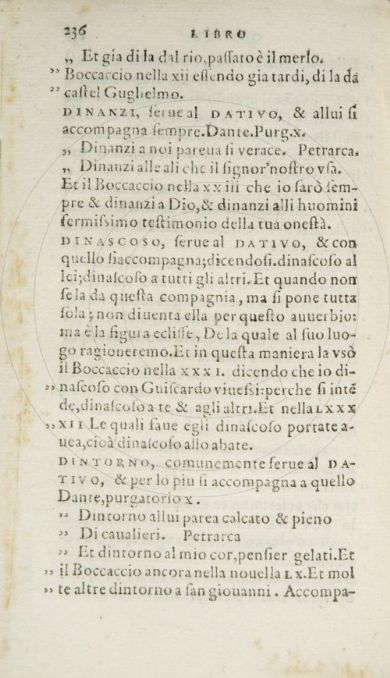 236 LIBRO
„ Et gia di la dal rio, paſſato è il merlo.
” Boccaccio nella xii eſſendo gia tardi, di la da
” caſtel Guglielmo.
DINANZI, ſerue al DATIVO, & allui ſi
accompagna ſempre. Dante. Purg. x.
„ Dinanzi a noi pareua ſi verace. Petrarca.
„ Dinanzi alle ali che il ſignor' noſtro vſa.
Et il Boccaccio nella xxiii che io ſarò ſem-
pre & dinanzi a Dio, & dinanzi alli huomini
fermiſsimo teſtimonio della tua oneſtà.
DINASCOSO, ſerue al DATIVO, & con
quello ſi accompagna; dicendoſi. dinaſcoſo al
lei; dinaſcoſo a tutti gli altri. Et quando non
ſe la da queſta compagnia, ma ſi pone tutta
ſola; non diuenta ella per queſto auuerbio:
ma è la figura ecliſſe, De la quale al ſuo luo-
go ragioneremo. Et in queſta maniera la vsò
il Boccaccio nella XXXI. dicendo che io di-
” naſcoſo con Guiſcardo viueſsi: perche ſi intē
de, dinaſcoſo a te & agli altri. Et nella LXXX
” XII Le quali ſaue egli dinaſcoſo portate a-
uea, cioà dinaſcoſo allo abate.
DINTORNO, comunemente ſerue al DA-
TIVO, & per lo piu ſi accompagna a quello
Dante, purgatorio x.
” Dintorno allui parea calcato & pieno
” Di caualieri. Petrarca
” Et dintorno al mio cor, penſier gelati. Et
” il Boccaccio ancora nella nouella LX. Et mol
” te altre dintorno a ſan giouanni. Accompa-